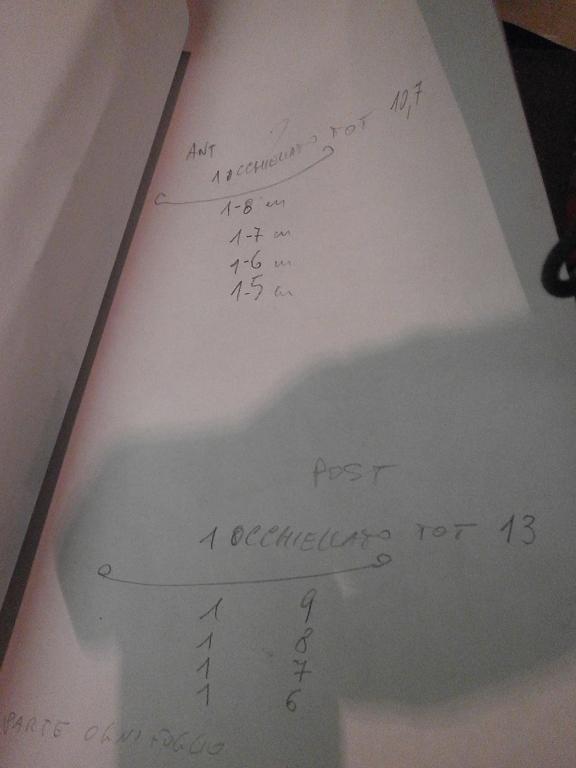 ANT
1 OCCHIELLATO TOT 10,7
1-8 cm
1-7 cm
1-6 cm
1-5 cm
POST
1 OCCHIELLATO TOT 13
1 9
1 8
1 7
1 6
PARTE OGNI FOGLIO